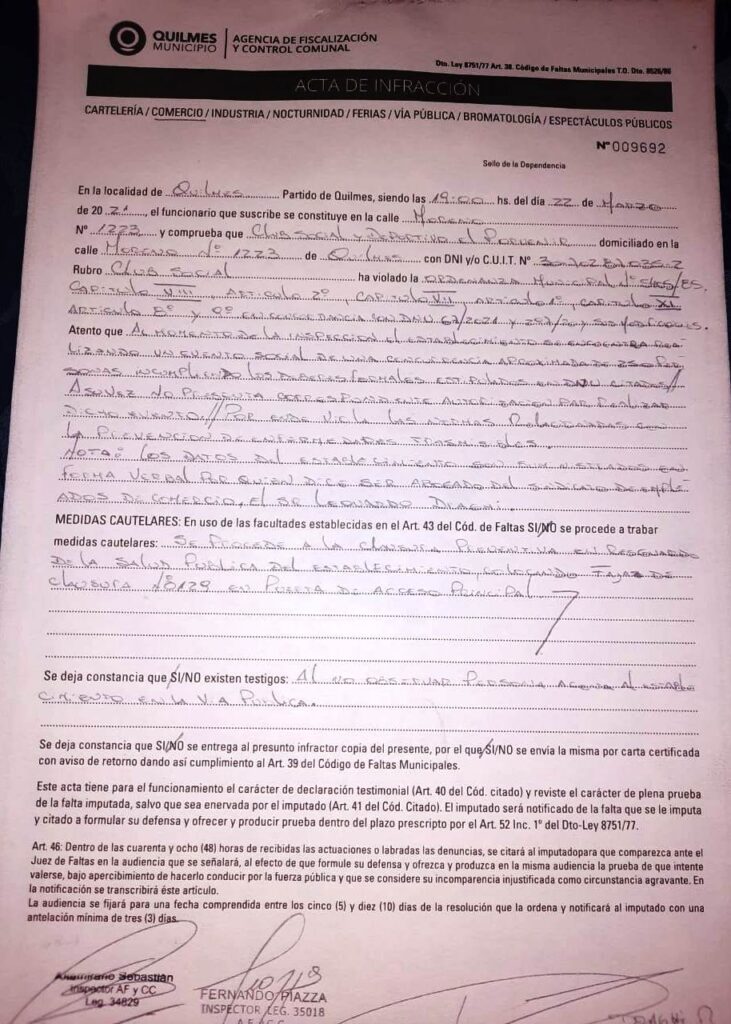 QUILMES
MUNICIPIO
AGENCIA DE FISCALIZACIÓN
Y CONTROL COMUNAL
Dto. Ley 8751/77 Art. 38. Código de Faltas Municipales T.O. Dto. 8526/86
ACTA DE INFRACCIÓN
CARTELERÍA / COMERCIO / INDUSTRIA / NOCTURNIDAD / FERIAS / VÍA PÚBLICA / BROMATOLOGÍA / ESPECTÁCULOS PÚBLICOS
N° 009692
Sello de la Dependencia
En la localidad de Quilmes Partido de Quilmes, siendo las 19:00 hs. del día 22 de Marzo
de 2021, el funcionario que suscribe se constituye en la calle Moreno
N° 1223 y comprueba que Club Social y Deportivo el Porvenir domiciliado en la
calle Moreno N° 1223 de Quilmes con DNI y/o C.U.I.T. N°
Rubro Club Social ha violado la Ordenanza Municipal N°
Capitulo VIII, Articulo 2º, Capitulo VII, Articulo 1º, Capitulo XI
Articulo 8º y 9º en concordancia con DNU 67/2021 y 297/20 y sus
Atento que Al momento de la inspección el establecimiento se encuentra rea-
lizando un evento social de una concurrencia aproximada de 250 per-
sonas incumpliendo los deberes formales estipulados en DNU citados//
Asuvez no presenta correspondiente autorizacion par realizar
dicho evento// Por ende viola las normas relacionadas con
la prevencion de enfermedades trasmisibles.
Nota: los datos del establecimiento son suministrados en
forma verbal por quien dice ser abogado del sindicato de emple-
ados de comercio, el Sr Leonardo
MEDIDAS CAUTELARES: En uso de las facultades establecidas en el Art. 43 del Cód. de Faltas SI/NO se procede a trabar
medidas cautelares: Se procede a la clausura preventiva en resguardo
de la salud publica del establecimiento, colocando fajas de
clausura 18129 en puerta de acceso principal
Se deja constancia que SI/NO existen testigos: Al no observar persona agena al estable
cimiento en la via publica.
Se deja constancia que SI/NO se entrega al presunto infractor copia del presente, por el que SI/NO se envía la misma por carta certificada
con aviso de retorno dando así cumplimiento al Art. 39 del Código de Faltas Municipales.
Este acta tiene para el funcionamiento el carácter de declaración testimonial (Art. 40 del Cód. citado) y reviste el carácter de plena prueba
de la falta imputada, salvo que sea enervada por el imputado (Art. 41 del Cód. Citado). El imputado será notificado de la falta que se le imputa
y citado a formular su defensa y ofrecer y producir prueba dentro del plazo prescripto por el Art. 52 Inc. 1° del Dto-Ley 8751/77.
Art. 46: Dentro de las cuarenta y ocho (48) horas de recibidas las actuaciones o labradas las denuncias, se citará al imputadopara que comparezca ante el
Juez de Faltas en la audiencia que se señalará, al efecto de que formule su defensa y ofrezca y produzca en la misma audiencia la prueba de que intente
valerse, bajo apercibimiento de hacerlo conducir por la fuerza pública y que se considere su incomparencia injustificada como circunstancia agravante. En
la notificación se transcribirá éste artículo.
La audiencia se fijará para una fecha comprendida entre los cinco (5) y diez (10) días de la resolución que la ordena y notificará al imputado con una
antelación mínima de tres (3) días.
Altamirano Sebastián
Inspector AF y CC
Leg. 34829
FERNANDO PIAZZA
INSPECTOR LEG. 35018